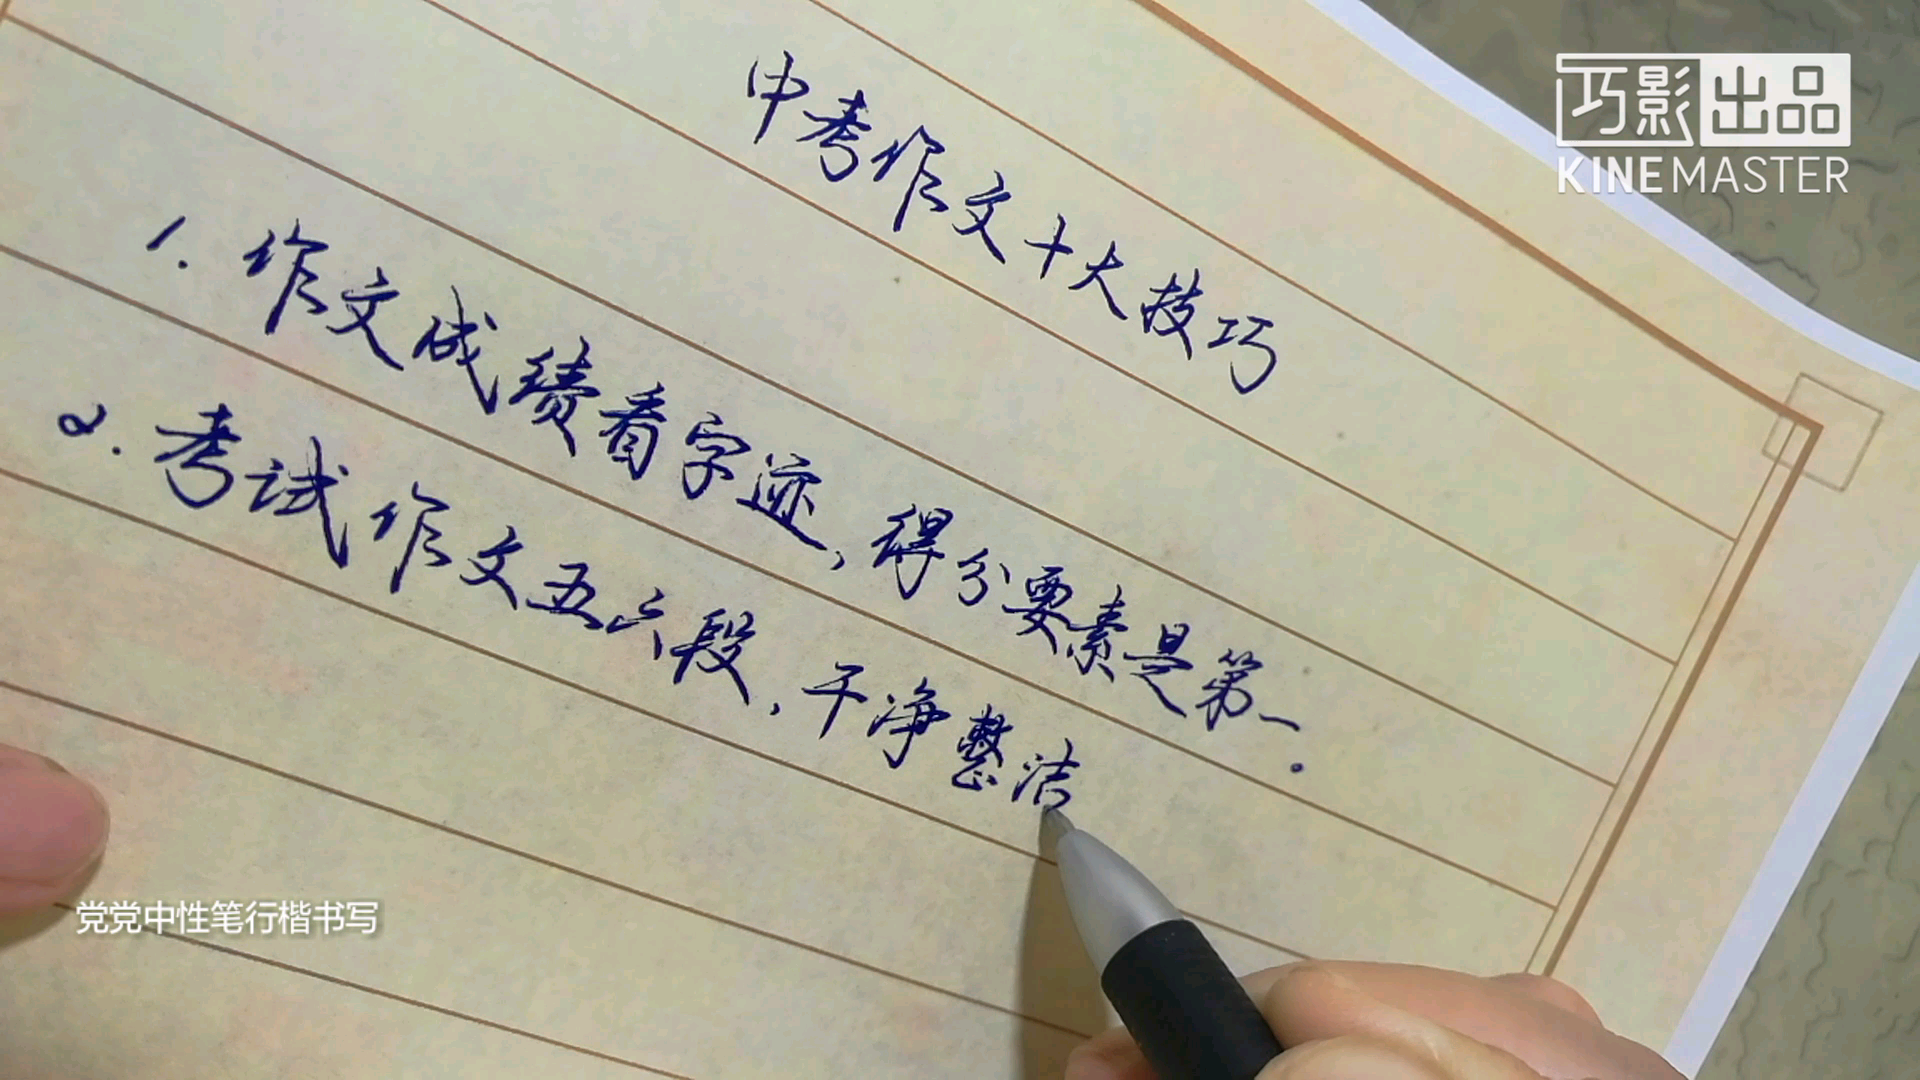 中考作文十大技巧
1.作文成绩看字迹,得分要素是第一.
2.考试作文五六段,干净整洁
党党中性笔行楷书写
巧影出品
KINEMASTER